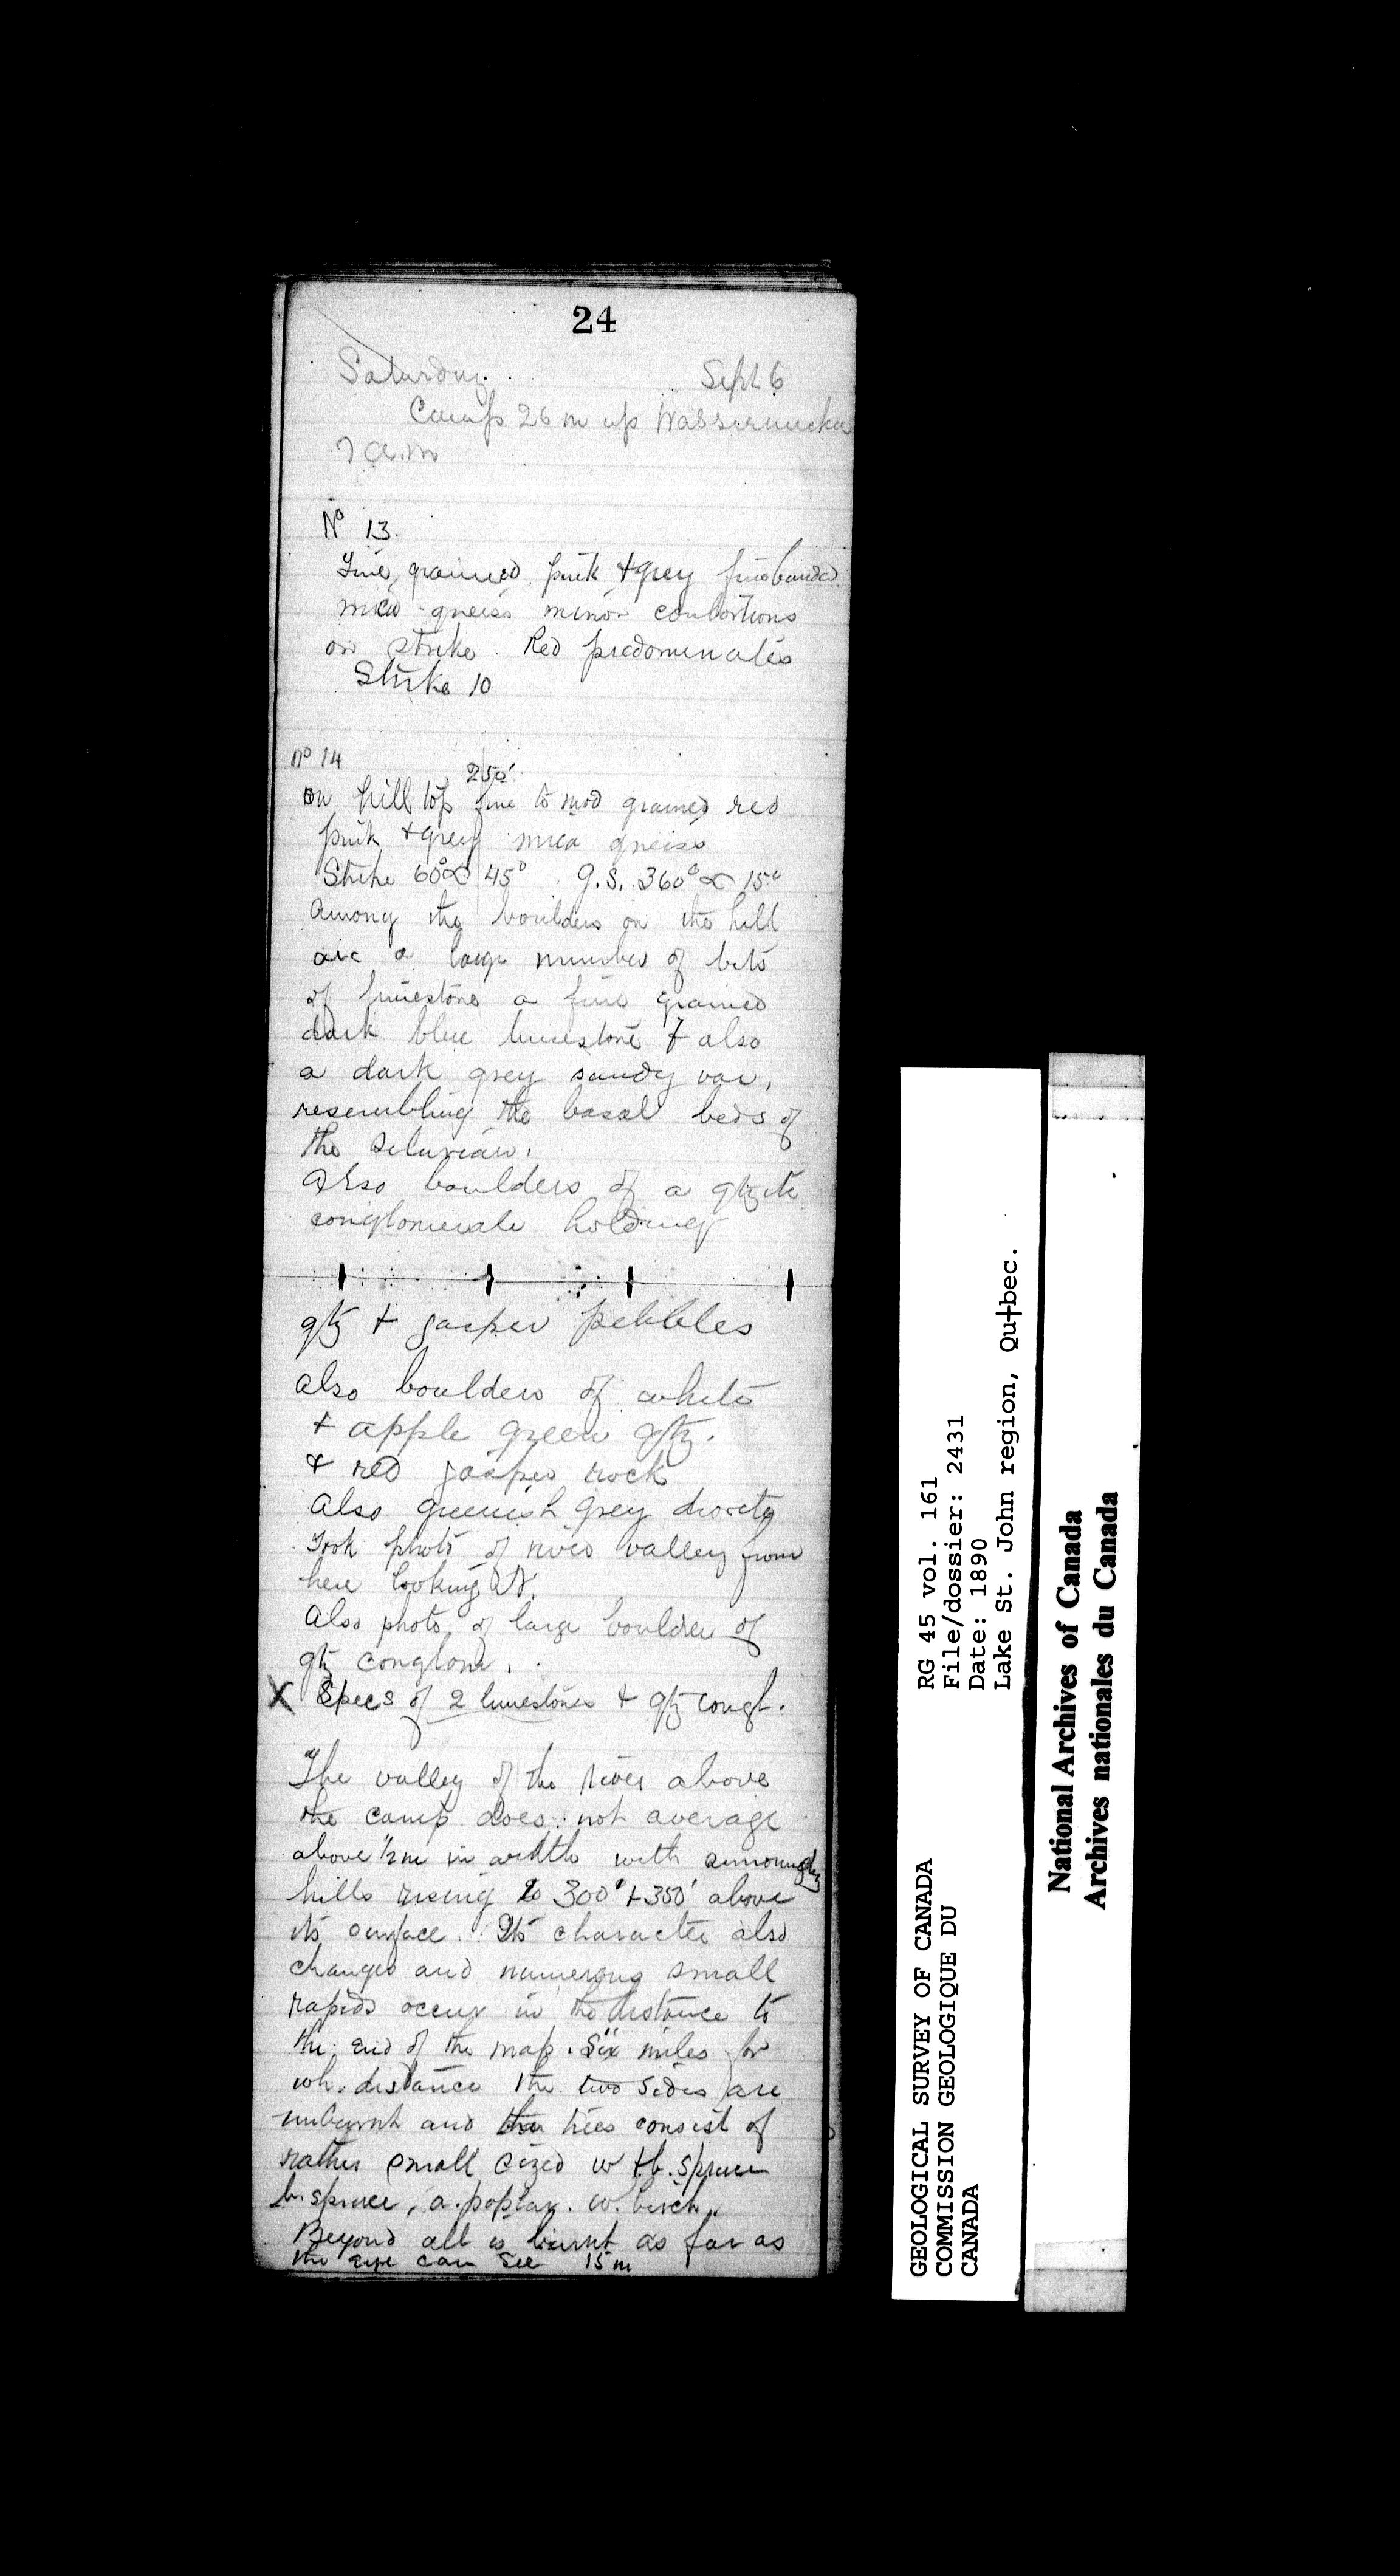 24
Saturday. Sept 6
Camp 26 m up
7 a.m
No 13.
Fine, grained pink + grey fine banded
mica gneiss minor contortions
on strike. Red predominates
Strike 10
No 14
250'
on hill top fine to mod grained red
pink + grey mica gneiss
Strike 60° ∝ 45° g.s. 360° ∝ 15°
Among the boulders on the hill
are a large number of bits
of limestone a fine grained
dark blue limestone & also
a dark grey sandy var,
resembling the basal beds of
the Silurian.
Also boulders of a qtzite
conglomerate holding
qtz + jasper pebbles
also boulders of white
+ apple green qtz.
& red jasper rock
Also greenish grey diorite
Took photo of river valley from
here looking N.
Also photo of large boulder of
qtz conglom.
X Specs of 2 limestones + qtz congl.
The valley of the river above
the camp does not average
above 1/2 m in width with surrounding
hills rising to 300' + 350' above
its surface. Its character also
changes and numerous small
rapids occur in the distance to
the end of the map. Six miles for
wh. distance the two sides are
unburnt and the trees consist of
rather small sized w + b. spruce
b. spruce, a. poplar. w. birch,
Beyond all is burnt as far as
the eye can see 15 m
GEOLOGICAL SURVEY OF CANADA
COMMISSION GEOLOGIQUE DU
CANADA
RG 45 vol. 161
File/dossier: 2431
Date: 1890
Lake St. John region, Qu†bec.
National Archives of Canada
Archives nationales du Canada